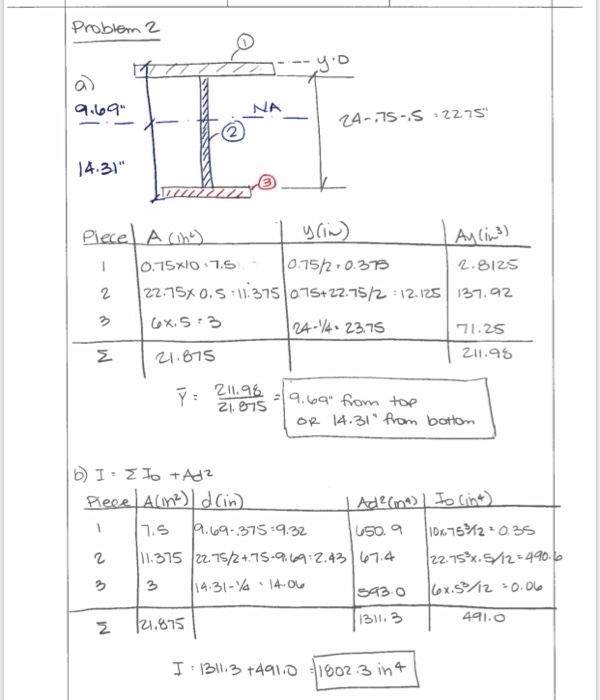 Problem 2
1
y=0
a)
9.69"
NA
24-.75-.5 = 22.75"
2
14.31"
3
Piece A (in²) y (in) Ay (in³)
1 0.75x10 = 7.5 0.75/2 = 0.375 2.8125
2 22.75x 0.5 = 11.375 0.75+22.75/2 = 12.125 137.92
3 6x.5 = 3 24-1/4 = 23.75 71.25
Σ 21.875 211.98
Ȳ = 211.98/21.875 = 9.69" from top
OR 14.31" from bottom
b) I = Σ Io + Ad²
Piece A(in²) d(in) Ad²(in⁴) Io(in⁴)
1 7.5 9.69-.375=9.32 650.9 10x.75³/12 = 0.35
2 11.375 22.75/2+.75-9.69=2.43 67.4 22.75³x.5/12=490.6
3 3 14.31-1/4 = 14.06 593.0 6x.5³/12 = 0.06
Σ 21.875 1311.3 491.0
I = 1311.3 + 491.0 = 1802.3 in⁴